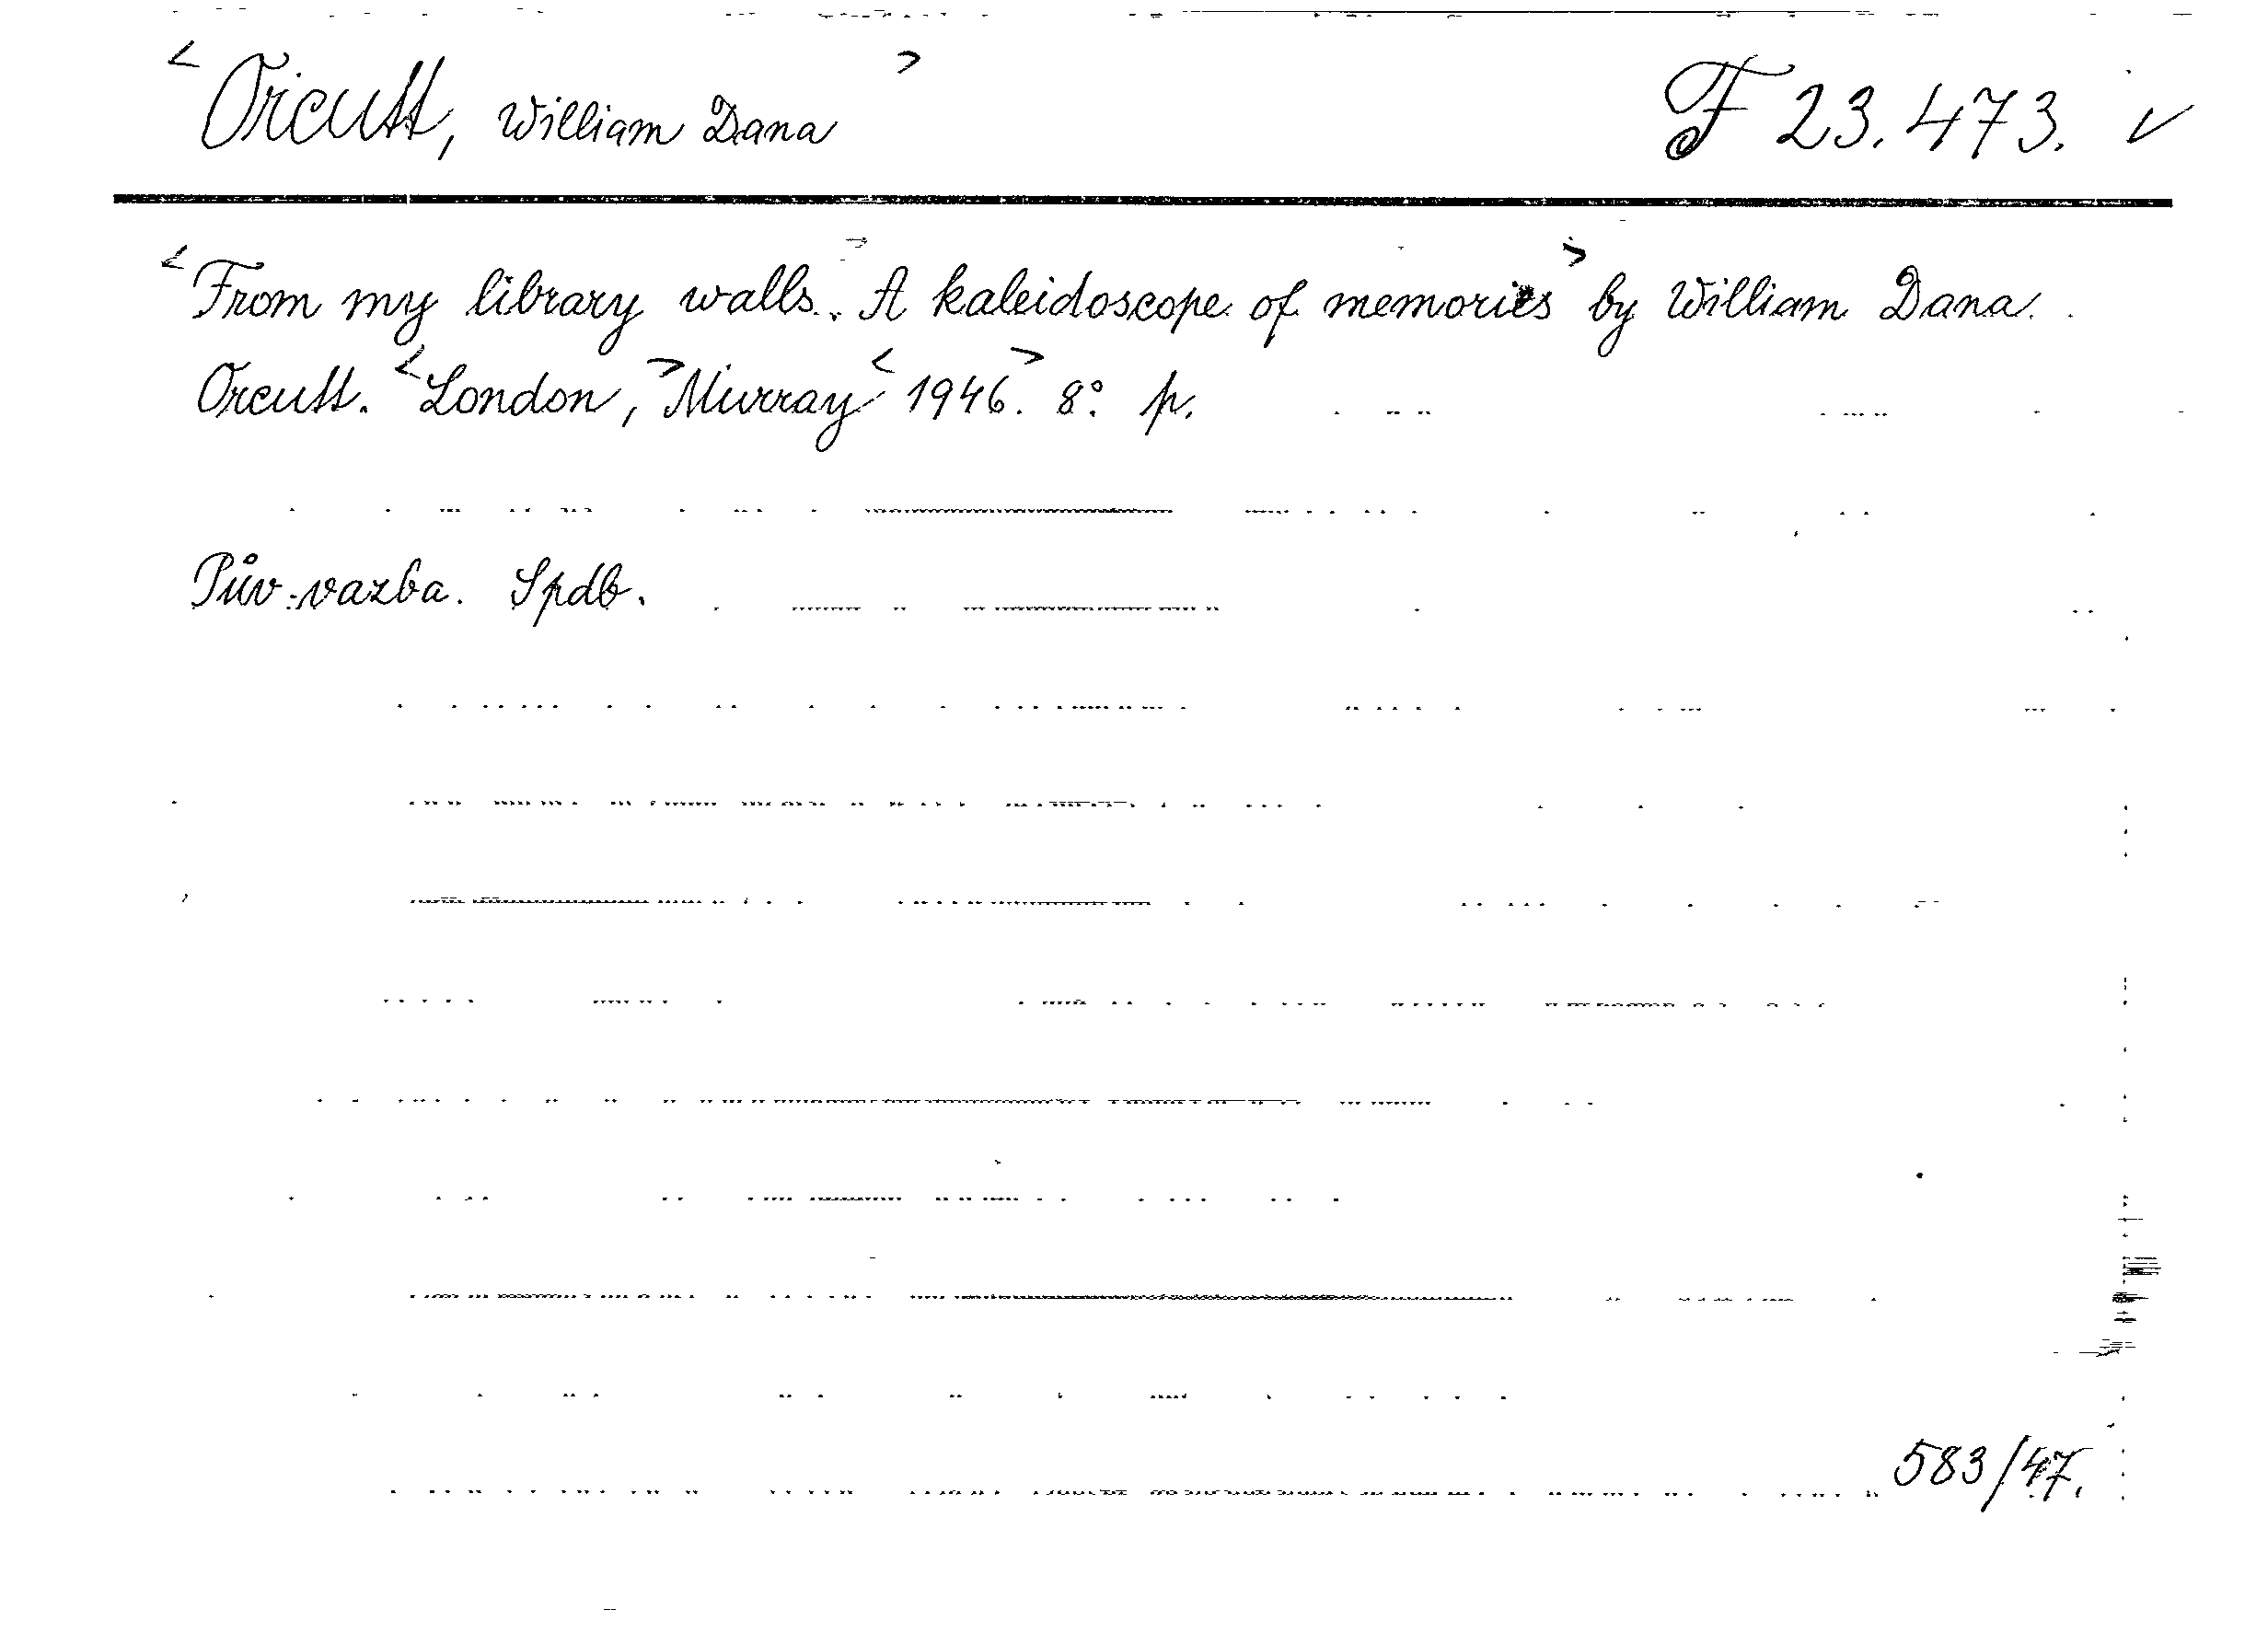 <Orcutt, William Dana> F 23.473. ✓
<From my library walls. A kaleidoscope of memories> by William Dana
Orcutt. <London,> Murray <1946.> 8° p.
Pův. vazba. Spdb.
583/47.